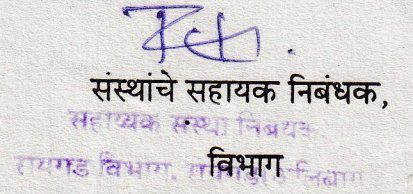 संस्थांचे सहायक निबंधक,
सहाय्यक संस्था निबंधक
रायगड विभाग,
विभाग